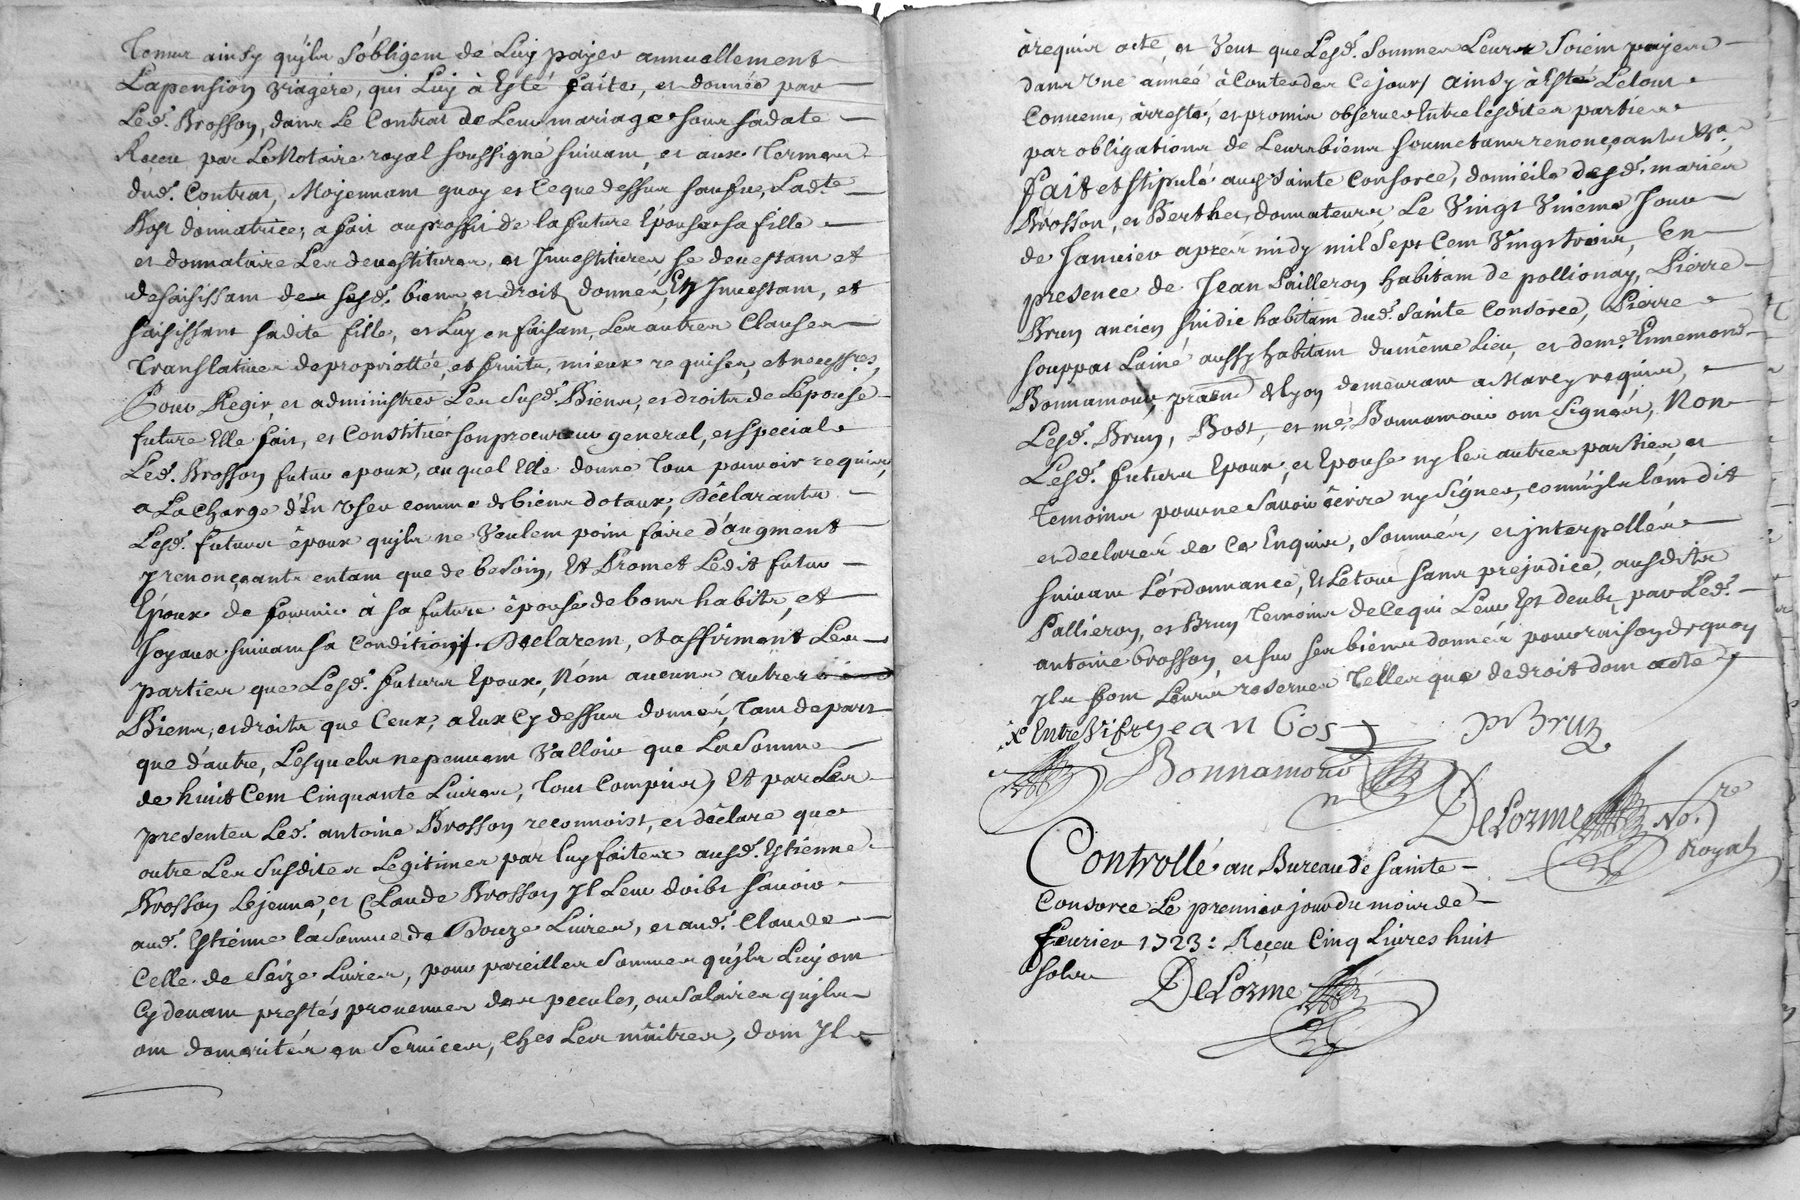 Tenus ainsy qujls s'obligent de Luy payer annuellement
Lapension viagere, qui Luy à Esté faite, et donnée par
Led. Brosson, dans Le Contrat de Leur mariage sous sa date
Receu par Le Notaire royal soussigné suivant, et aux Termes
dud. Contrat, Moyennant quoy et Ceque dessus Ladte
Bost donnatrice, a fait au proffit de la future Epouse sa fille
et donnataire Les devestitures, et Jnvestitures se devestant et
desaisissant de sesd. biens, et droits donnés, En Jnvestant, et
saisissant sadite fille, et Luy en faisant, Les autres Clauses
Translatives de proprietté, et fruits, mieux requises, et necessres,
Pour Regir, et administrer Les Susd. Biens, et droits de Lepouse
future Elle fait, et Constitue son procureur general, et special
Led. Brosson futur epoux, auquel Elle donne Tout pouvoir requis,
a La Charge d'En User comme de biens dotaux, Déclarants
Lesd. futurs époux qujls ne Veulent point faire d'augment
y renonçants entant que de besoin, Et Promet Ledit futur
Epoux de fournir à sa future épouse de bons habits, et
Joyaux suivant sa Condition, Declarent, et affirment Les
parties que Lesd. futurs Epoux, N'ont aucuns autres
Biens, et droits que Ceux, a Eux Cy dessus donnés, Tant depart
que d'autre, Lesquels ne peuvent Valloir que La Somme
de huit Cent Cinquante Livres, Tout Compris, Et par Les
presentes Led. antoine Brosson reconnoist, et déclare que
outre Les Susdites Legitimes par luy faites ausd. Estienne
Brosson Lejeune, et Claude Brosson Jl Leur doibt savoir
aud. Estienne la somme de Douze Livres, et aud. Claude
Celle de Seize Livres, pour pareilles Sommes qujls Luy ont
Cy devant prestés provenues des pecules, ou salaires qujls
ont demerités en Services, Ches Les mâitres, dont Jl
à requis acte et Veut que Lesd. Sommes Leurs Soient payées
dans Une année à Conter de Ce jour, ainsy à Esté Letout
Convenu, arresté, et promis observer Entre Lesdites parties
par obligations de Leurs biens soumetans renonçants &a.
fait et stipulé aud. Sainte Consorce, domicile desd. mariés
Brosson, et Berthet, donnateurs Le Vingt Unieme Jour
de Janvier aprés midy mil Sept Cent Vingt trois, En
presence de Jean Pailleron habitant de pollionay, Pierre
Brun ancien sindic habitant dud. Sainte Consorce, Pierre
souppat Lainé aussy habitant du même Lieu, et deme. Ennemond
Bonnamour, praticn de Lyon demeurant a Marcy requis,
Lesd. Brun, Bost, et me. Bonnamour ont Signés, Non
Lesd. futurs Epoux, et Epouse ny les autres parties, et
Temoins pour ne savoir écrire ny signer, comme jls l'ont dit
et declarés de Ce Enquis, Sommés, et jnterpellés
suivant Lordonnance, Et Letout sans prejudice, ausdits
Pallieron, et Brun Temoins de Ce qui Leur Est deubt, par Led.
antoine brosson, et sur ses biens donnés pour raison de quoy
Jls font Leurs reserves Telles que de droit dont acte
x Entre vifs Jean Bost P Brun
Bonnamour
DeLorme No.re
Royal
Controllé au Bureau de Sainte
Consorce Le premier jour du mois de
fevrier 1723: Receu Cinq Livres huit
sols
DeLorme